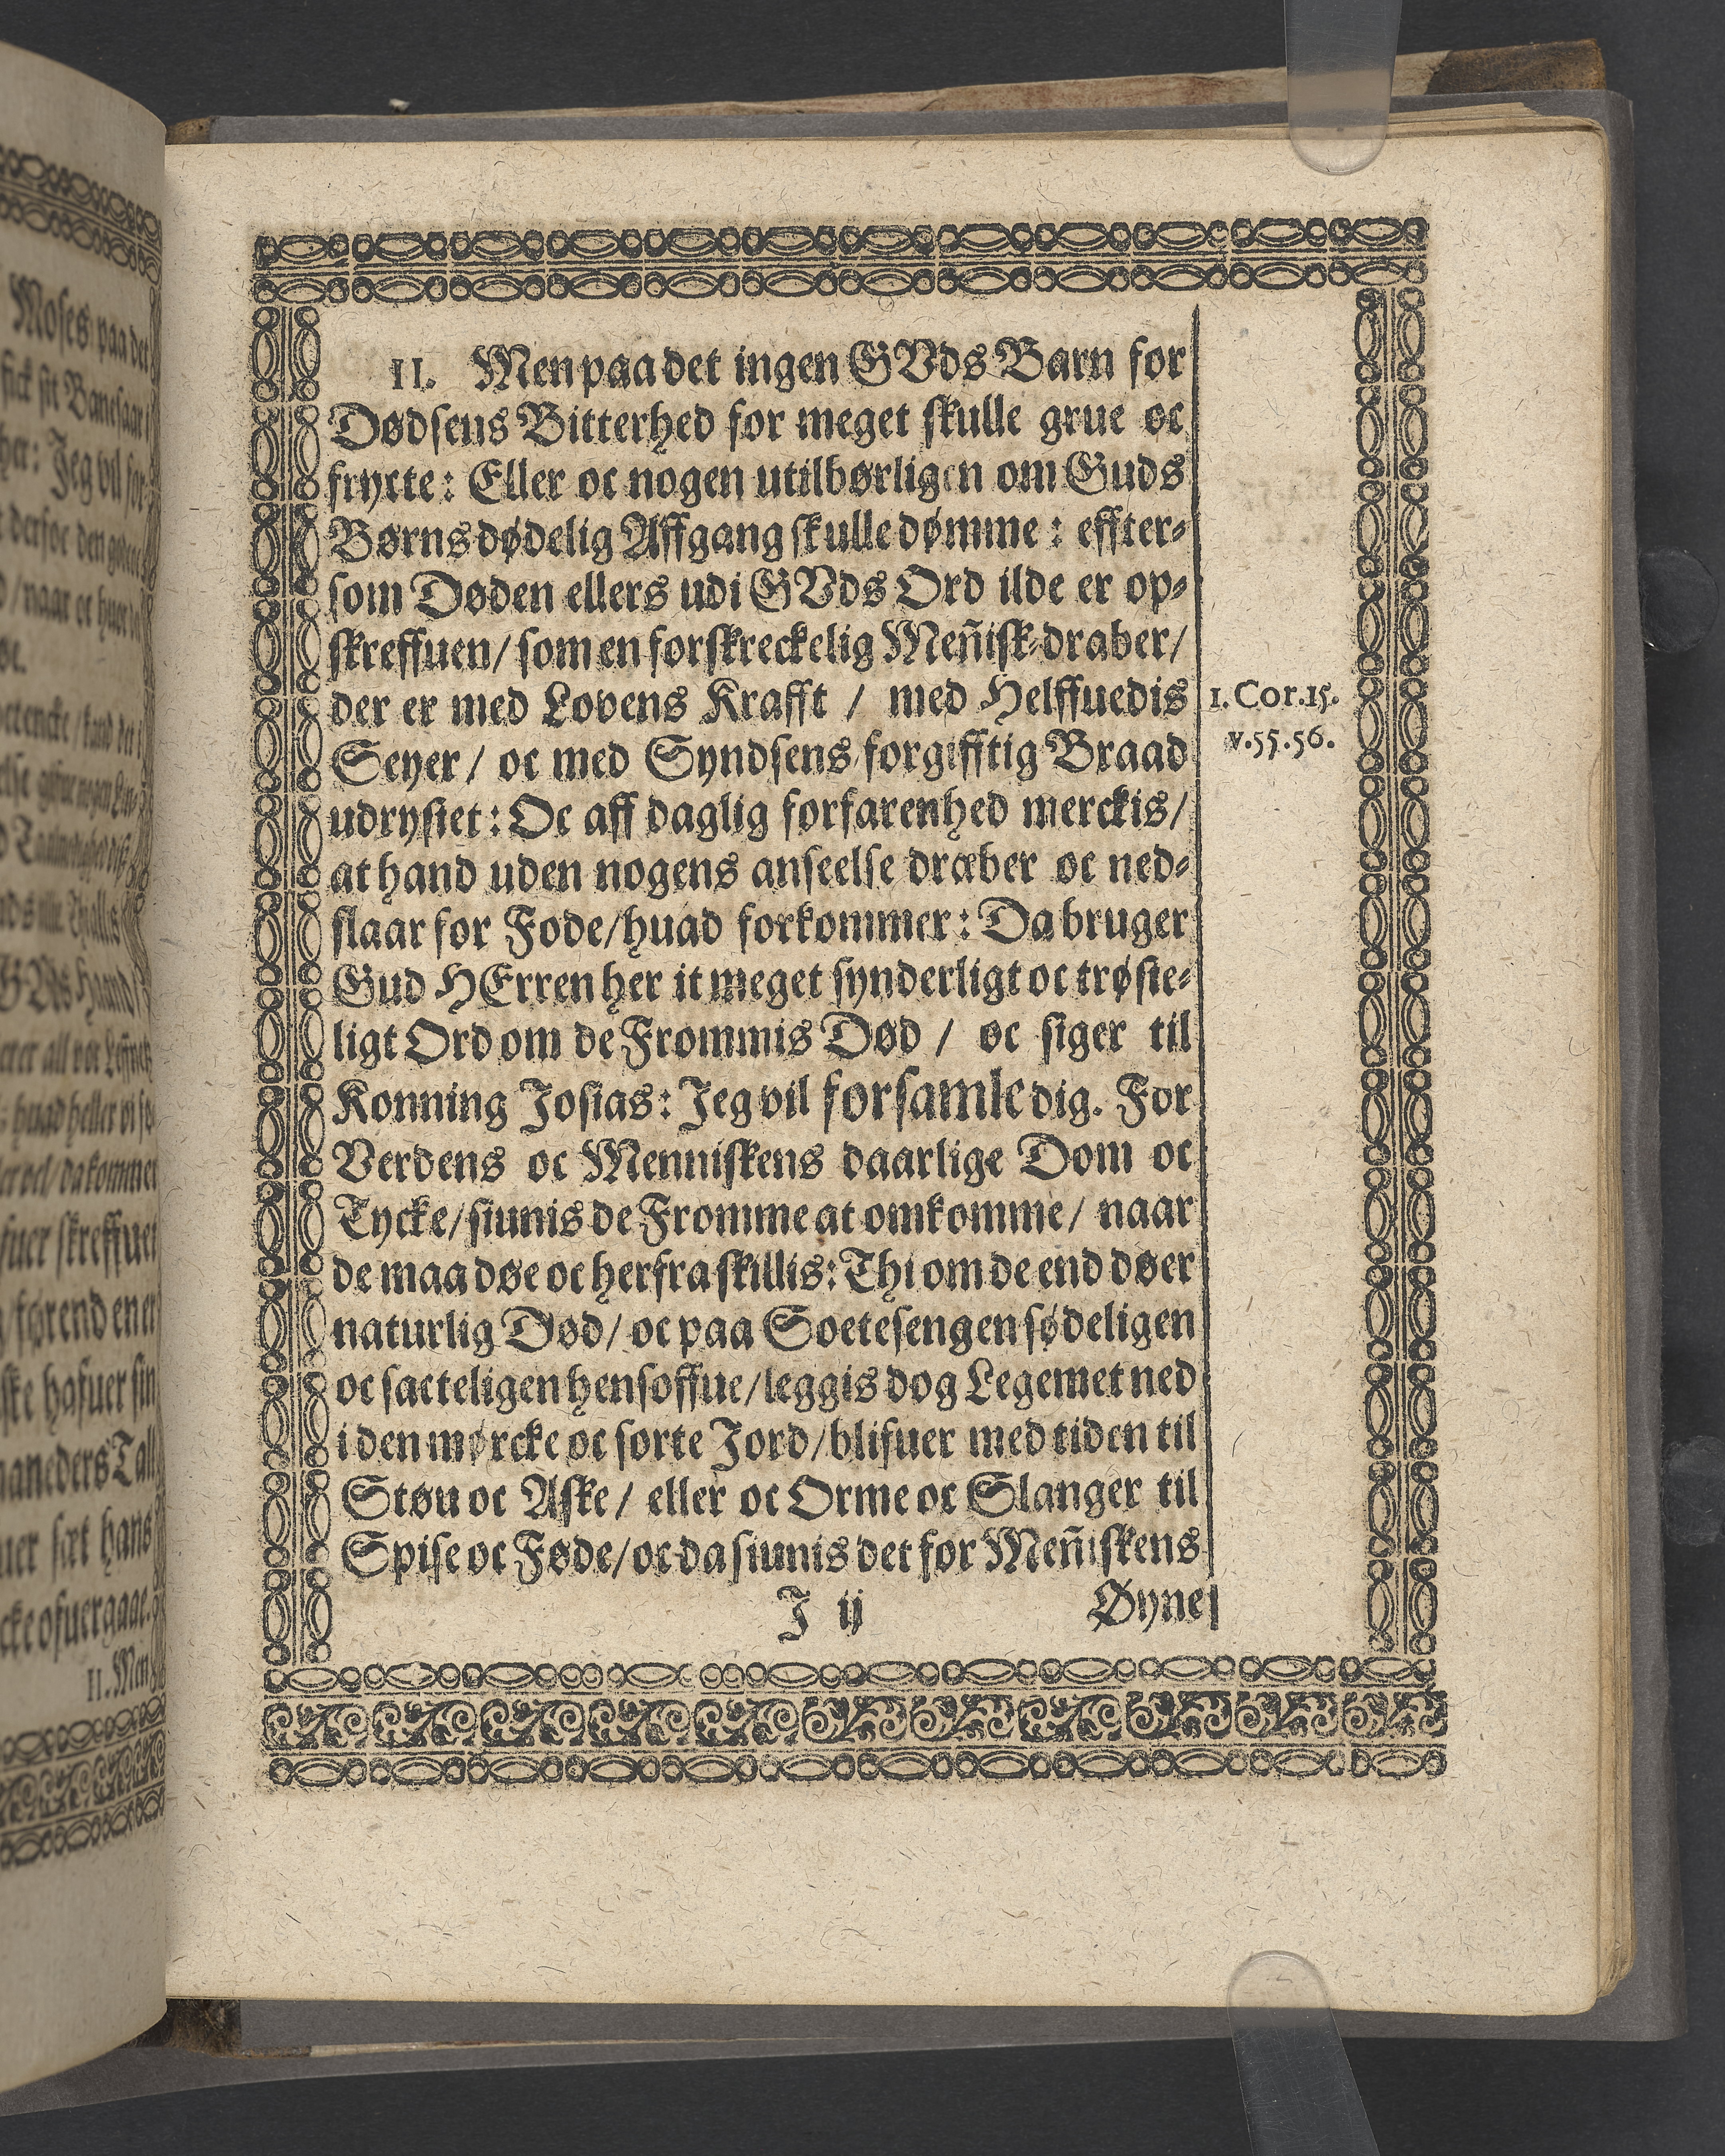 Moses paa det
fick sit Banesaar i
her: Jeg vil for-
derfor den
/ naar oc huer
oc.
II. Men
II. Men paa det ingen GVds Barn for
Dødsens Bitterhed for meget skulle grue oc
frycte: Eller oc nogen utilbørligen om Guds
Børns dødelig Affgang skulle dømme: effter-
som Døden ellers udi GVds Ord ilde er op-
skreffuen/ som en forskreckelig Meñisk-draber/
der er med Lovens Krafft / med Helffuedis
Seyer/ oc med Syndsens forgifftig Braad
udrystet: Oc aff daglig forfarenhed merckis/
at hand uden nogens anseelse dræber oc ned-
slaar for Fode/ huad forkommer: Da bruger
Gud HErren her it meget synderligt oc trøste-
ligt Ord om de Frommis Død / oc siger til
Konning Josias: Jeg vil forsamle dig. For
Verdens oc Menniskens daarlige Dom oc
Tycke/ siunis de Fromme at omkomme/ naar
de maa døe oc herfra skillis: Thi om de end døer
naturlig Død/ oc paa Soetesengen sødeligen
oc sacteligen hensoffue/ leggis dog Legemet ned
i den mørcke oc sorte Jord/ blifuer med tiden til
Støu oc Aske/ eller oc Orme oc Slanger til
Spise oc Føde/ oc da siunis det for Meñiskens
J ij Øyne
1. Cor. 15.
v. 55. 56.